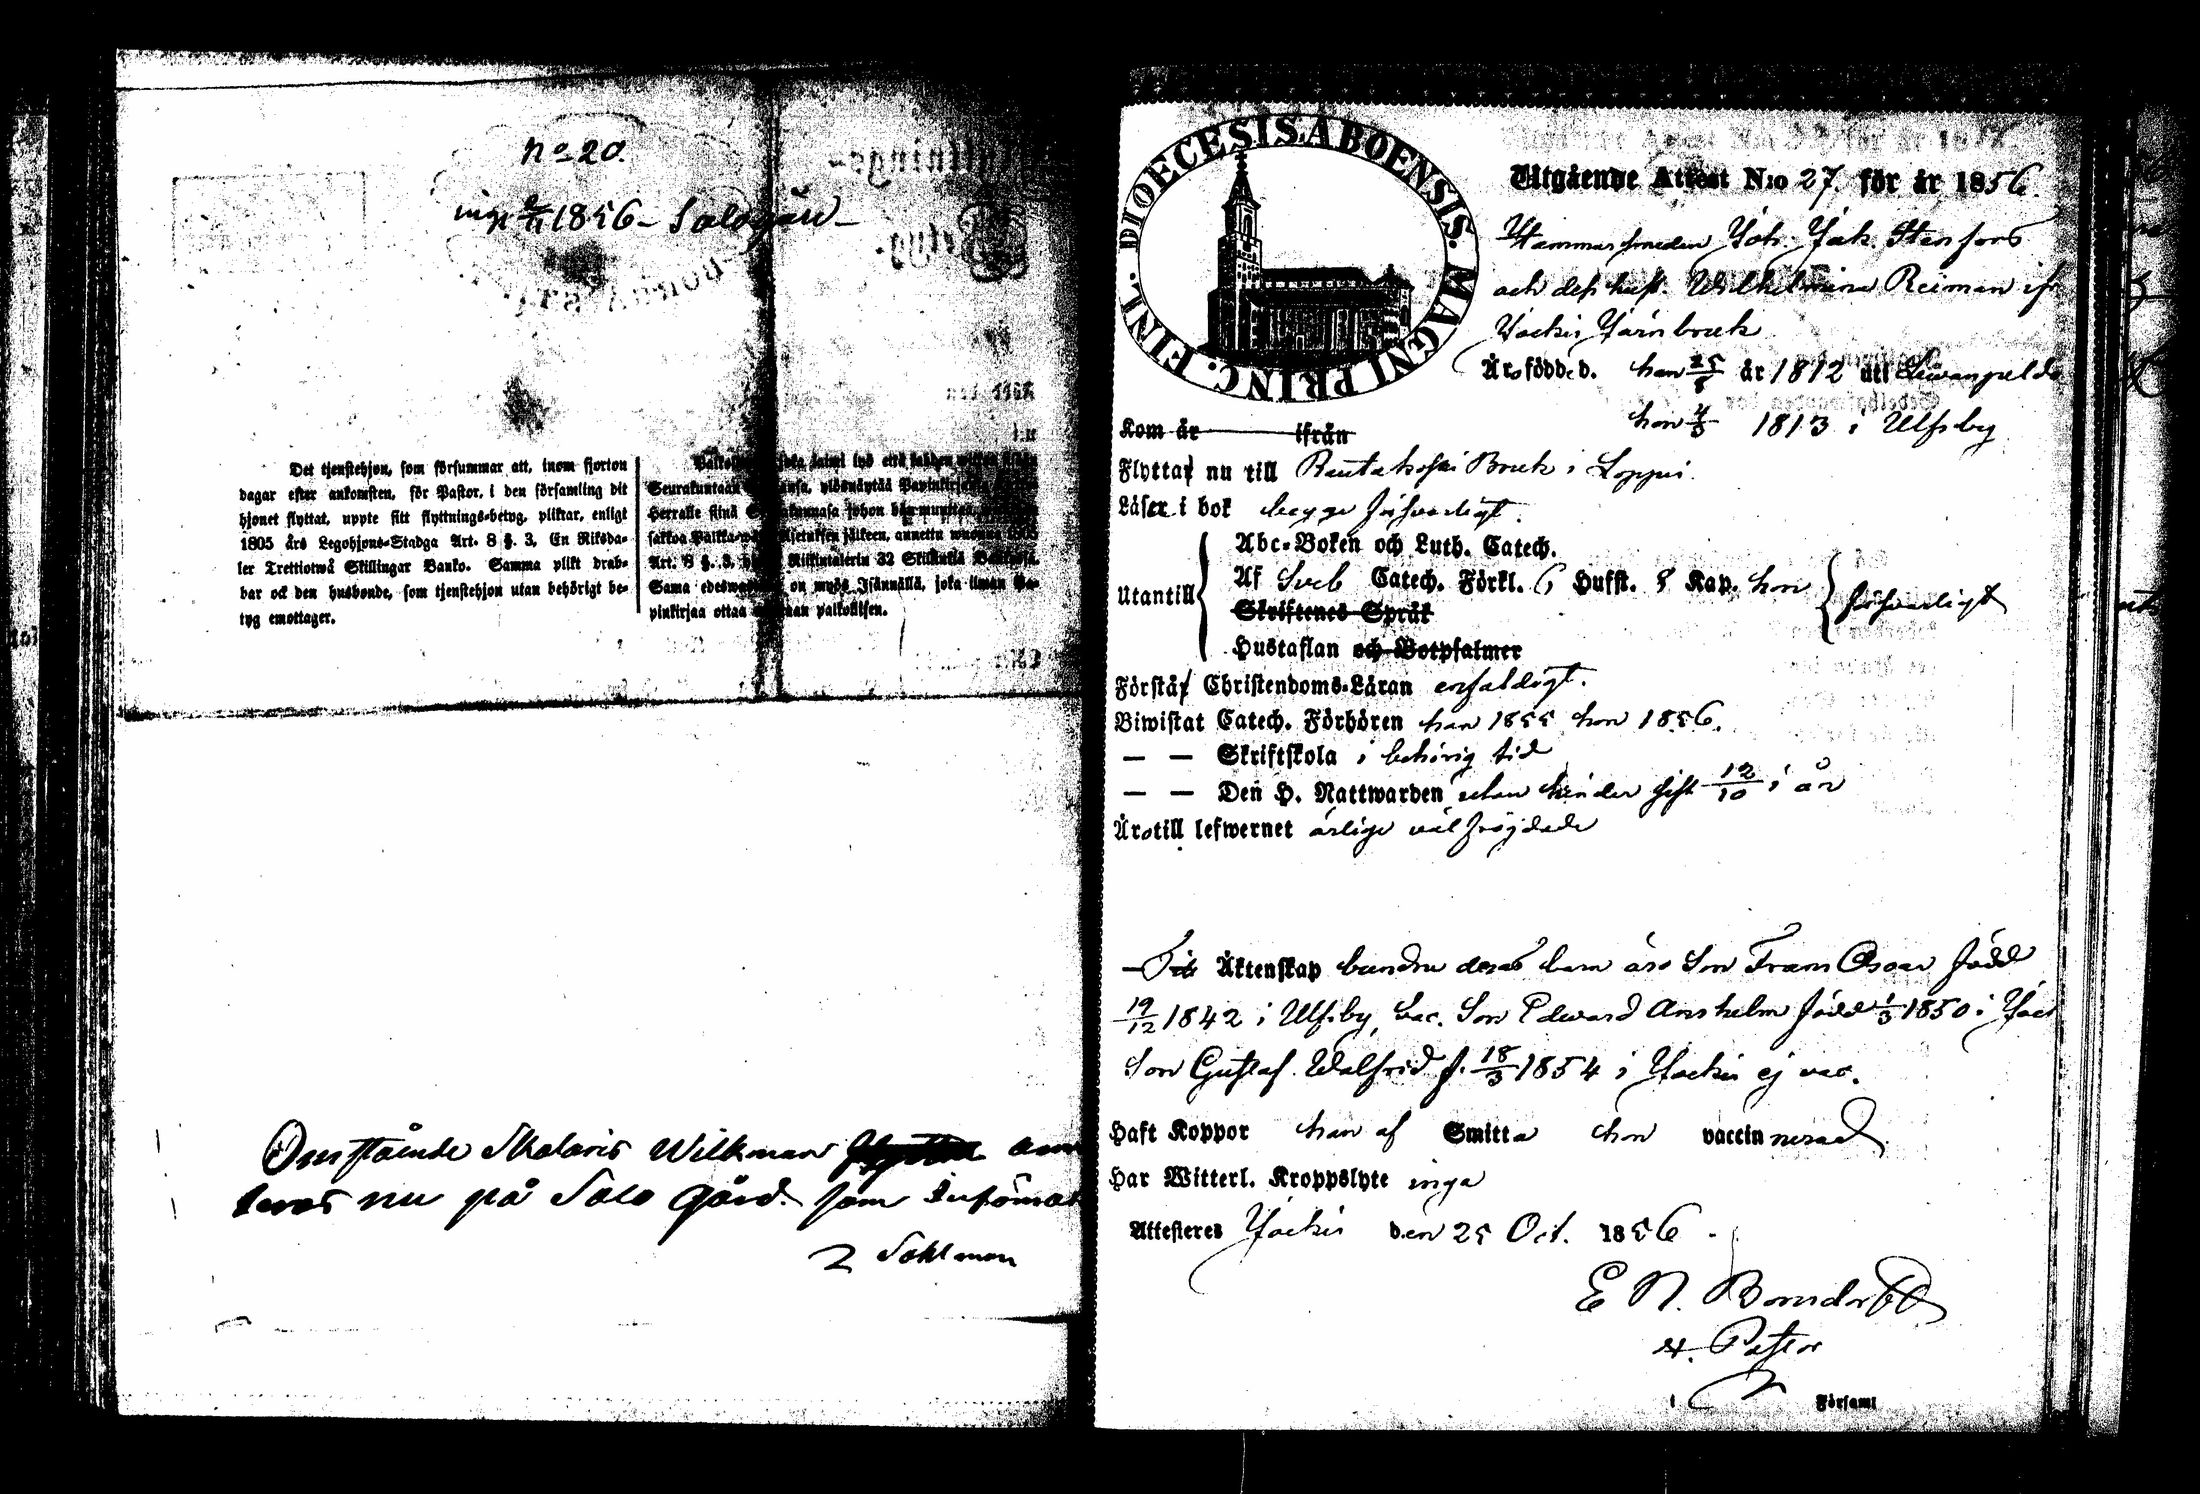 No 20.
ing. 2/11 1856 – Salogård –
Det tjenstehjon, som försummar att, inom fjorton
dagar efter ankomsten, för Pastor, i den församling dit
hjonet flyttat, uppte sitt flyttnings-betyg, pliktar, enligt
1805 års Legohjons-Stadga Art. 8 §. 3, En Riksda-
ler Trettiotwå Skillingar Banko. Samma plikt drab-
bar ock den husbonde, som tjenstehjon utan behörigt be-
tyg emottager.
Seurakuntaan ylösnäytää
Herralle siinä
sakkoa jälkeen, annettu
Art. 8 §. 3. Riikintalerin 32 Skillinkiä
Sama on myös Isännällä, joka ilman Pa-
pinkirjaa ottaa palkollisen.
Omstående Skolaris Wilkman
teras nu på Salo Gård som Informat
Sahlman
DIOECESIS. ABOENSIS. MAGNI PRINC. FINL.
Utgående Attest N:o 27. för år 1856.
Hammarsmeden Joh. Jak. Stenfors
och dess hust. Wilhelmina Reiman ifr
Jockis Järnbruk
Äro födde d. han 25/8 år 1812 uti
hon 4/3 1813 i Ulfsby
Kom år ifrån
Flytta nu till Rautakoski Bruk i Loppis.
Läser i bok begge försvarligt.
Utantill
Abc-Boken och Luth. Catech.
Af Sveb Catech. Förkl. 6 Hufst. 8 Kap. hon
Skriftenes Språk
Hustaflan och Botpsalmer
försvarligt
Förstå Christendoms-Läran enfaldigt.
Biwistat Catech. Förhören han 1855 hon 1856.
— — Skriftskola i behörig tid
— — Den H. Nattwarden utan hinder sist 12/10 i år
Äro till lefwernet ärlige väl frejdade
Äktenskap bundne deras barn äro Son Frans Oscar född
19/12 1842 i Ulfsby, vac. Son Edward Anshelm född 1/3 1850 i Jock
Son Gustaf Walfrid f. 18/3 1854 i Jockis ej vac.
Haft Koppor han af Smitta hon vaccinnerad
Har Witterl. Kroppslyte inga
Attesteres Jockis den 25 Oct. 1856.
E N. Borsdorff
Pastor
i Församl